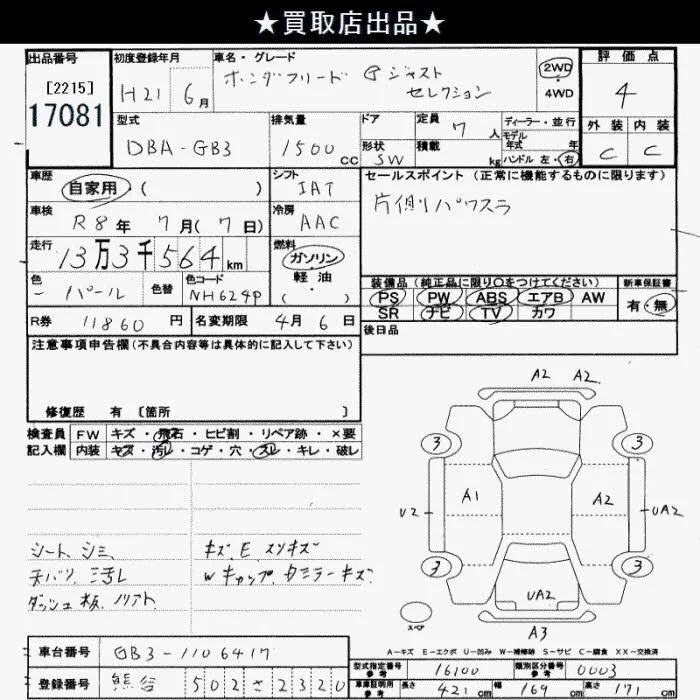 ★買取店出品★
出品番号 初度登録年月 車名・グレード 評価点
[2215]
17081
H21 6月 ホンダフリード G ジャスト
セレクション
2WD
4WD
4
型式 排気量 ドア 定員 7人 ディーラー・並行
モデル
年式 年
外装 内装
DBA-GB3 1500cc 形状 SW 積載 kg ハンドル 左・右
C C
車歴 シフト セールスポイント(正常に機能するものに限ります)
自家用・( ) IAT
片側パワスラ
車検 冷房
R8年 7月(7日) AAC
走行 13万3千564km 燃料
ガソリン
軽・油
・
( )
色 パール 色替 色コード NH624P
装備品(純正品に限り○をつけてください) 新車保証書
PS PW ABS エアB AW 有・無
SR ナビ TV カワ
R券 11860円 名変期限 4月6日
後日品
注意事項申告欄(不具合内容等は具体的に記入して下さい)
修復歴 有〔箇所 〕
検査員 FW キズ・飛石・ヒビ割・リペア跡・×要
記入欄 内装 キズ・汚レ・コゲ・穴・スレ・キレ・破レ
A2 A2
3 3
A1 A2
U2 UA2
3 3
UA2
スペア
A3
シート、シミ キズ、E、スリキズ
天バリ、汚レ Wキャップ、ダミラーキズ
ダッシュ板、
A-キズ E-エクボ U-凹み W-補修跡 S-サビ C-腐食 XX-交換済
車台番号 GB3-1106417
型式指定番号 参考 16100 類別区分番号 参考 0003
登録番号 熊谷 502 さ 2320
車庫証明用 参考 長さ 421cm 幅 169cm 高さ 171cm